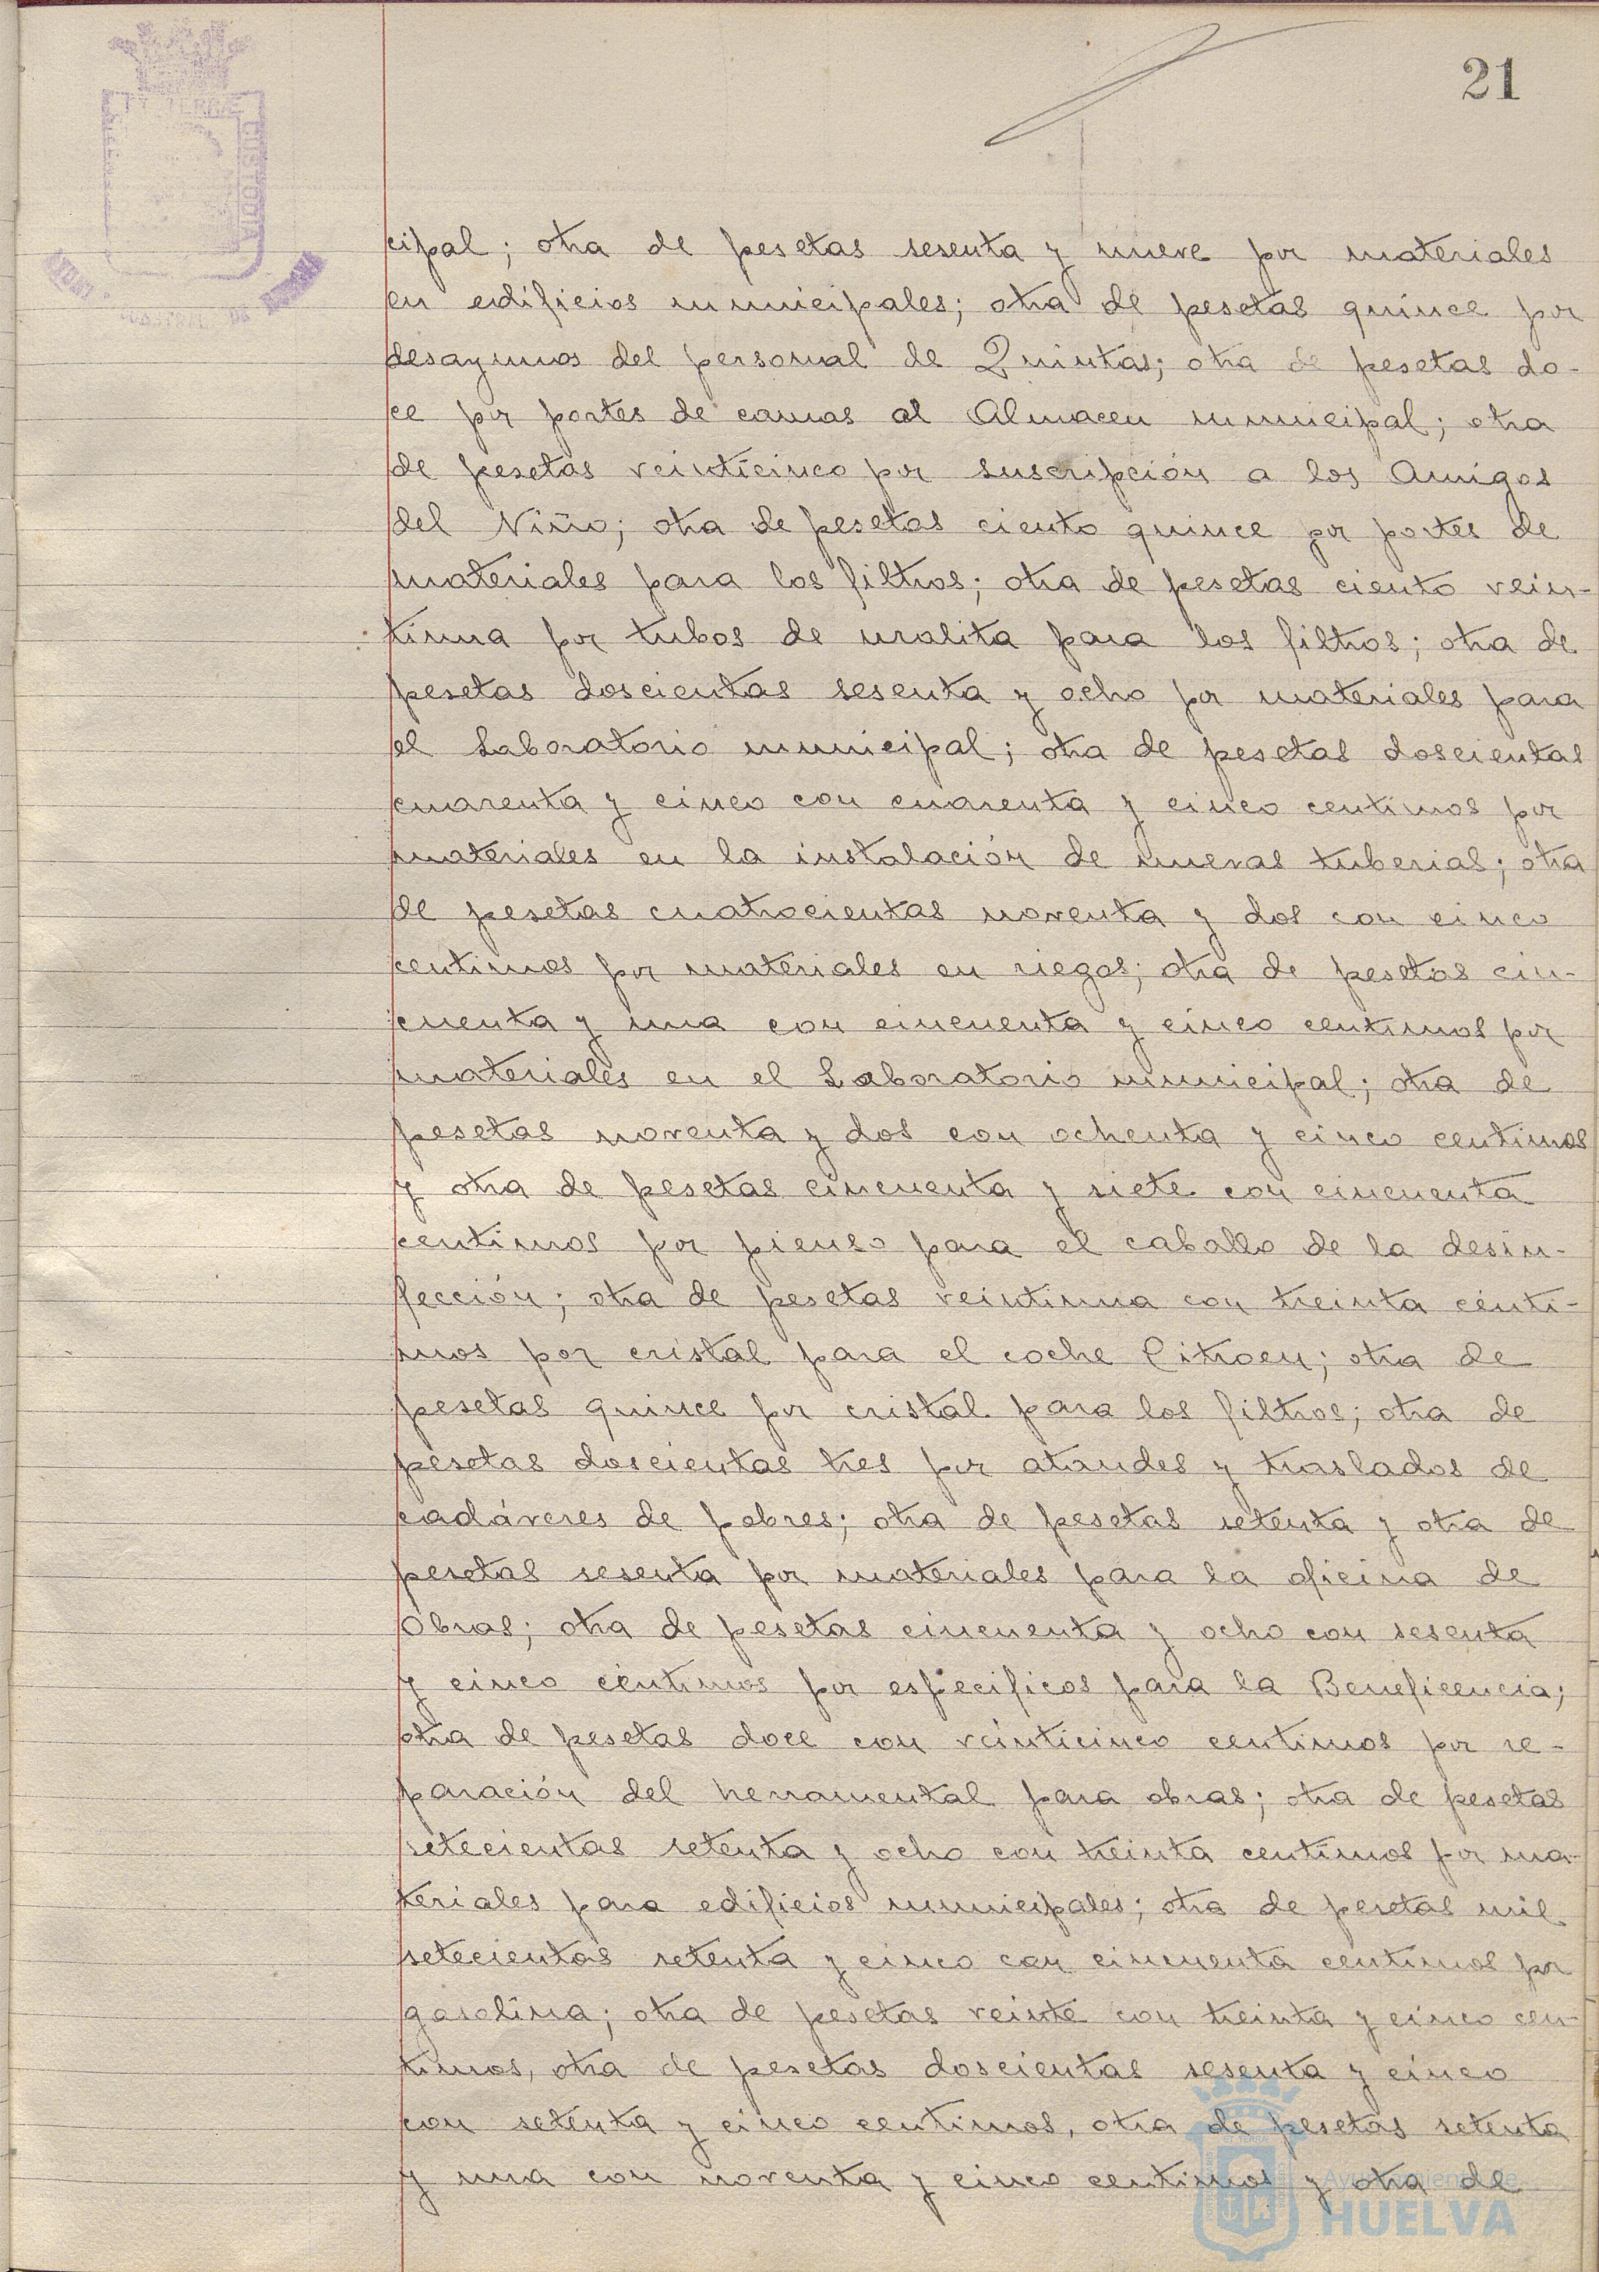 21
TERRÆ
CUSTODIA
cipal; otra de pesetas sesenta y nueve por materiales
en edificios municipales; otra de pesetas quince por
desayunos del personal de Quintas; otra de pesetas do-
ce por portes de camas al Almacen municipal; otra
de pesetas veinticinco por suscripción a los Amigos
del Niño; otra de pesetas ciento quince por portes de
materiales para los filtros; otra de pesetas ciento vein-
tiuna por tubos de uralita para los filtros; otra de
pesetas doscientas sesenta y ocho por materiales para
el Laboratorio municipal; otra de pesetas doscientas
cuarenta y cinco con cuarenta y cinco centimos por
materiales en la instalación de nuevas tuberias; otra
de pesetas cuatrocientas noventa y dos con cinco
centimos por materiales en riegos; otra de pesetas cin-
cuenta y una con cincuenta y cinco centimos por
materiales en el Laboratorio municipal; otra de
pesetas noventa y dos con ochenta y cinco centimos
y otra de pesetas cincuenta y siete con cincuenta
centimos por pienso para el caballo de la desin-
fección; otra de pesetas veintiuna con treinta centi-
mos por cristal para el coche Citroen; otra de
pesetas quince por cristal para los filtros; otra de
pesetas doscientas tres por ataudes y traslados de
cadáveres de pobres; otra de pesetas setenta y otra de
pesetas sesenta por materiales para la oficina de
Obras; otra de pesetas cincuenta y ocho con sesenta
y cinco céntimos por especificos para la Beneficencia;
otra de pesetas doce con veinticinco centimos por re-
paración del herramental para obras; otra de pesetas
setecientas setenta y ocho con treinta centimos por ma-
teriales para edificios municipales; otra de pesetas mil
setecientas setenta y cinco con cincuenta centimos por
gasolina; otra de pesetas veinte con treinta y cinco cen-
timos, otra de pesetas doscientas sesenta y cinco
con setenta y cinco centimos, otra de pesetas setenta
y una con noventa y cinco centimos y otra de
Ayuntamiento de
HUELVA